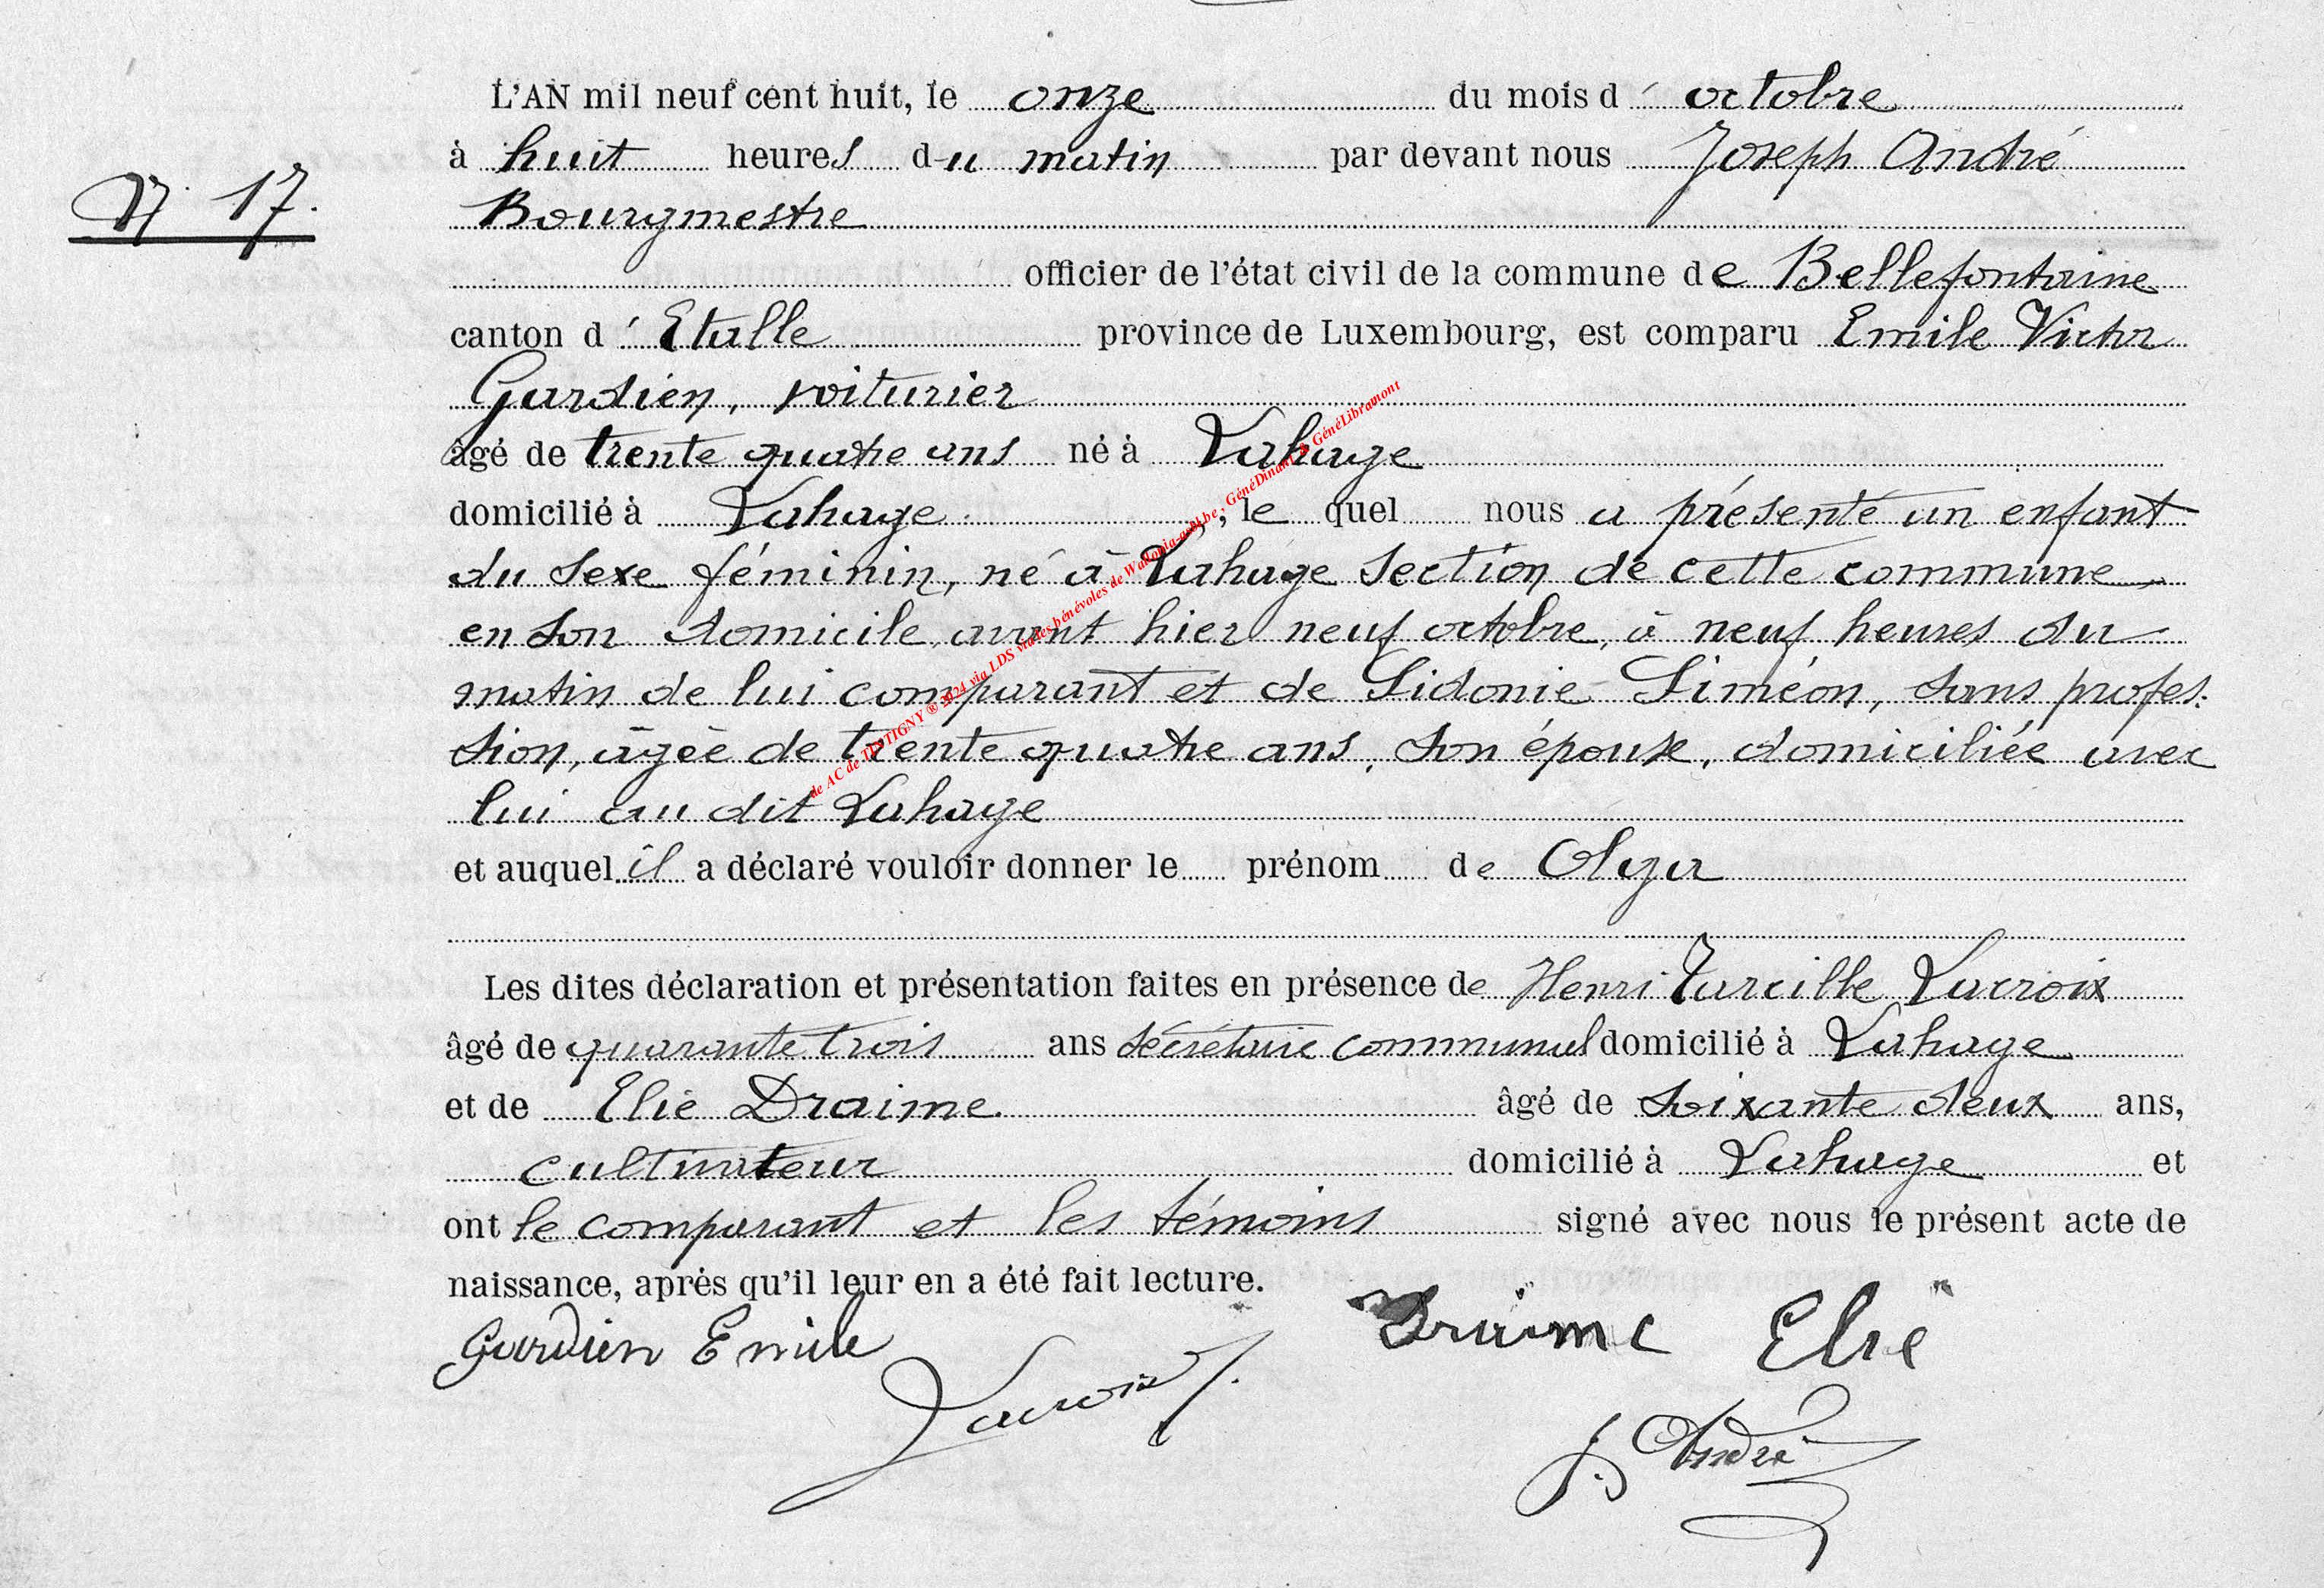 L'AN mil neuf cent huit, le onze du mois d' octobre
à huit heures du matin par devant nous Joseph André
N. 17.
Bourgmestre
officier de l'état civil de la commune de Bellefontaine
canton d' Etalle province de Luxembourg, est comparu Emile Victor
Gardien, voiturier
âgé de trente quatre ans né à Lahage
domicilié à Lahage, le quel nous a présenté un enfant
du sexe féminin, né à Lahage section de cette commune,
en son domicile, avant hier neuf octobre, à neuf heures du
matin de lui comparant et de Sidonie Siméon, sans profes:
sion, âgée de trente quatre ans, son épouse, domiciliée avec
lui au dit Lahage
et auquel il a déclaré vouloir donner le prénom de Olga
Les dites déclaration et présentation faites en présence de Henri Tarcille Lacroix
âgé de quarante trois ans sécrétaire communal domicilié à Lahage
et de Elie Draime. âgé de soixante deux ans,
cultivateur domicilié à Lahage et
ont le comparant et les témoins signé avec nous le présent acte de
naissance, après qu'il leur en a été fait lecture.
Gardien Emile Draime Elie
Lacroix
J. André
de AC de TINTIGNY ® 2024 via LDS via les bénévoles de Wallonia-asbl.be; GénéDinant & GénéLibramont